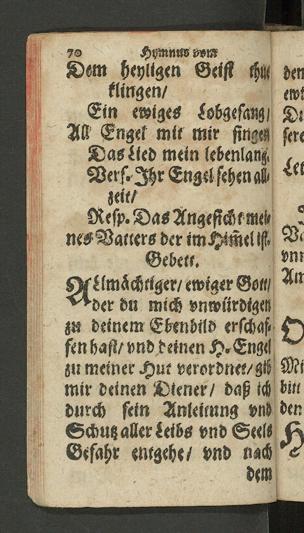 70 Hymnus vom
Dem heyligen Geist thue
klingen/
Ein ewiges Lobgesang/
All Engel mit mir singen
Das Lied mein lebenlang.
Vers. Ihr Engel sehen all-
zeit/
Resp. Das Angesicht mei-
nes Vatters der im Him̃el ist.
Gebett.
Allmächtiger/ ewiger Gott/
der du mich vnwürdigen
zu deinem Ebenbild erschaf-
fen hast/ vnd deinen H. Engel
zu meiner Hut verordnet/ gib
mir deinen Diener/ daß ich
durch sein Anleitung vnd
Schutz aller Leibs vnd Seels
Gefahr entgehe/ vnd nach
dem